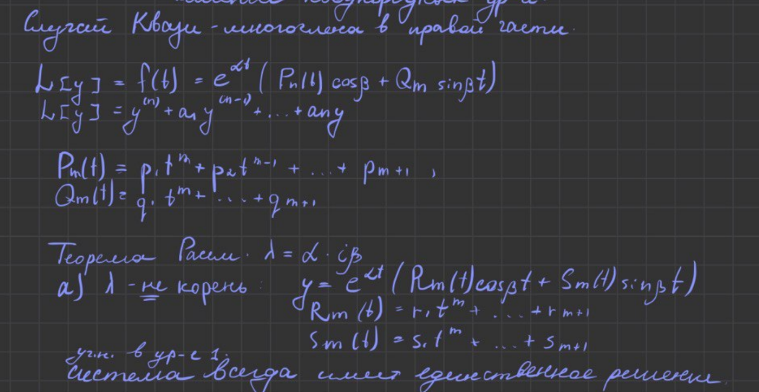 Случай Квази-многочлена в правой части.
L[y] = f(t) = e^{αt} ( P_n(t) cosβ + Q_m sinβt)
L[y] = y^{(n)} + a_1 y^{(n-1)} + ... + a_n y
P_m(t) = p_1 t^m + p_2 t^{m-1} + ... + p_{m+1} ,
Q_m(t) = q_1 t^m + ... + q_{m+1}
Теорема Рассм. λ = α · iβ
а) λ - не корень : y = e^{αt} ( R_m(t) cosβt + S_m(t) sinβt)
R_m(t) = r_1 t^m + ... + r_{m+1}
S_m(t) = s_1 t^m + ... + s_{m+1}
в ур-е 1.
система всегда имеет единственное решение